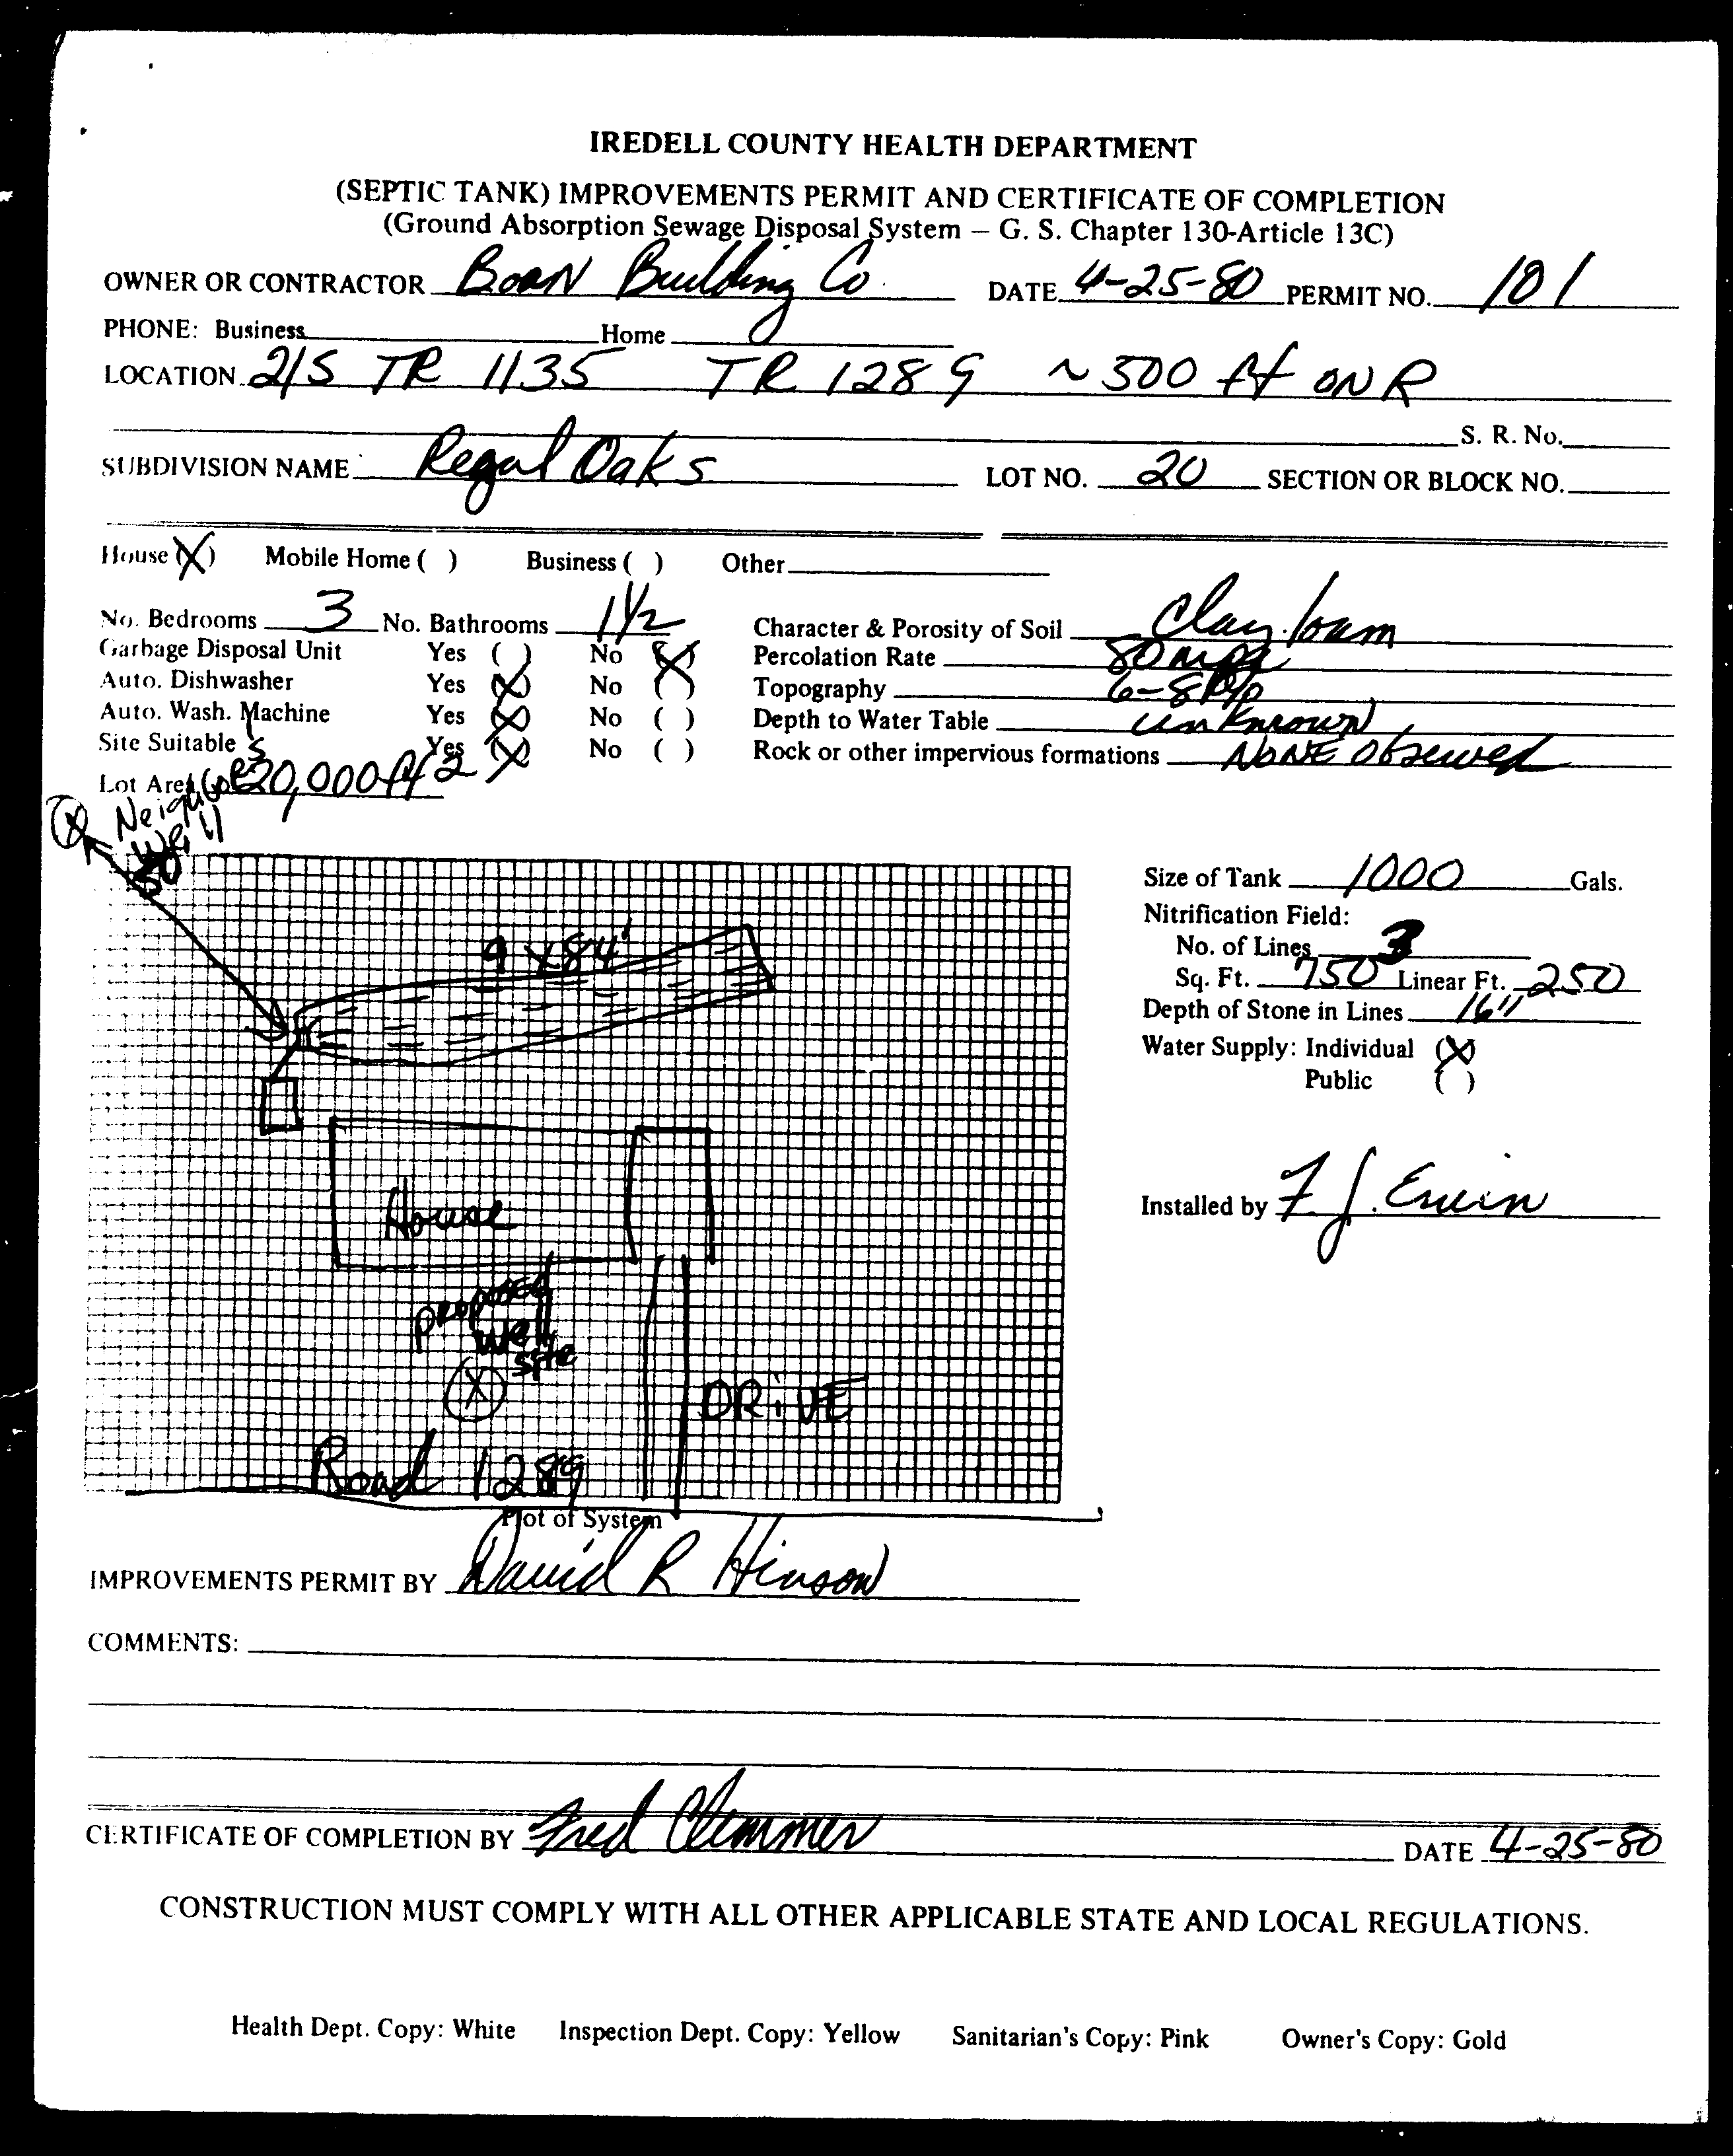 IREDELL COUNTY HEALTH DEPARTMENT
(SEPTIC TANK) IMPROVEMENTS PERMIT AND CERTIFICATE OF COMPLETION
(Ground Absorption Sewage Disposal System – G. S. Chapter 130-Article 13C)
OWNER OR CONTRACTOR Boan Building Co. DATE 4-25-80 PERMIT NO. 101
PHONE: Business Home
LOCATION 21S TR 1135 TR 1289 ~ 500 ft ON R
S. R. No.
SUBDIVISION NAME Regal Oaks LOT NO. 20 SECTION OR BLOCK NO.
House (X) Mobile Home ( ) Business ( ) Other
No. Bedrooms 3 No. Bathrooms 1 1/2 Character & Porosity of Soil Clay loam
Garbage Disposal Unit Yes ( ) No (X) Percolation Rate 80 mpi
Auto. Dishwasher Yes (X) No ( ) Topography 6-8%
Auto. Wash. Machine Yes (X) No ( ) Depth to Water Table unknown
Site Suitable Yes (X) No ( ) Rock or other impervious formations NONE Observed
Lot Area 20,000 ft 2
Neighbor's
Well
50'
9 x 84'
House
proposed
well
site
DRiVE
Road 1289
Plot of System
Size of Tank 1000 Gals.
Nitrification Field:
No. of Lines 3
Sq. Ft. 750 Linear Ft. 250
Depth of Stone in Lines 16"
Water Supply: Individual (X)
Public ( )
Installed by F. J. Erwin
IMPROVEMENTS PERMIT BY David R Hinson
COMMENTS:
CERTIFICATE OF COMPLETION BY Fred Clemmer DATE 4-25-80
CONSTRUCTION MUST COMPLY WITH ALL OTHER APPLICABLE STATE AND LOCAL REGULATIONS.
Health Dept. Copy: White Inspection Dept. Copy: Yellow Sanitarian's Copy: Pink Owner's Copy: Gold